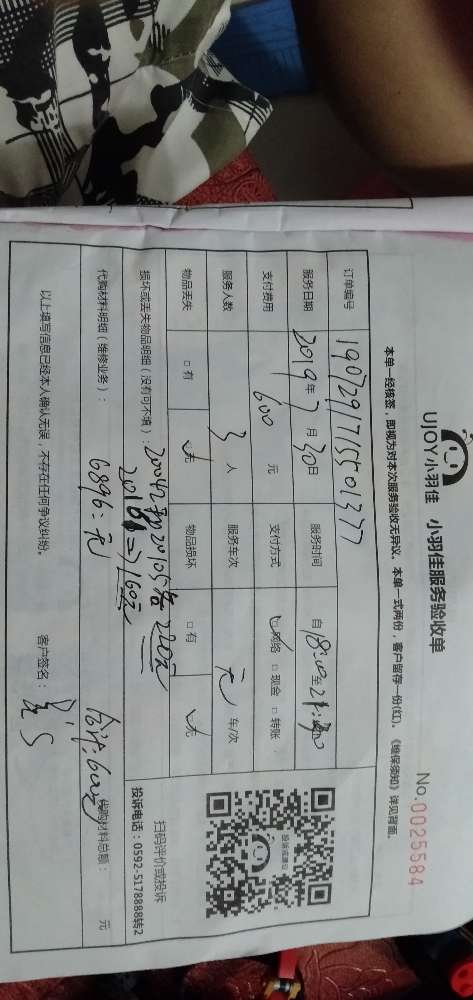 UJOY小羽佳 小羽佳服务验收单
No.0025584
本单一经核签，即视为对本次服务验收无异议。本单一式两份，客户留存一份(红)。《维保须知》详见背面。
订单编号 1907291715501377
服务日期 2019年7月30日 服务时间 自18:00至21:30
支付费用 600元 支付方式 网络 □现金 □转账
服务人数 3人 服务车次 无 车/次
物品丢失 □有 无 物品损坏 □有 无
损坏或丢失物品明细（没有可不填）：
220元
160元
代购材料明细（维修业务）：
代购材料总额： 元
合计:600元
以上填写信息已经本人确认无误，不存在任何争议纠纷。
客户签名：
投诉或建议
扫码评价或投诉
投诉电话：0592-5178888转2